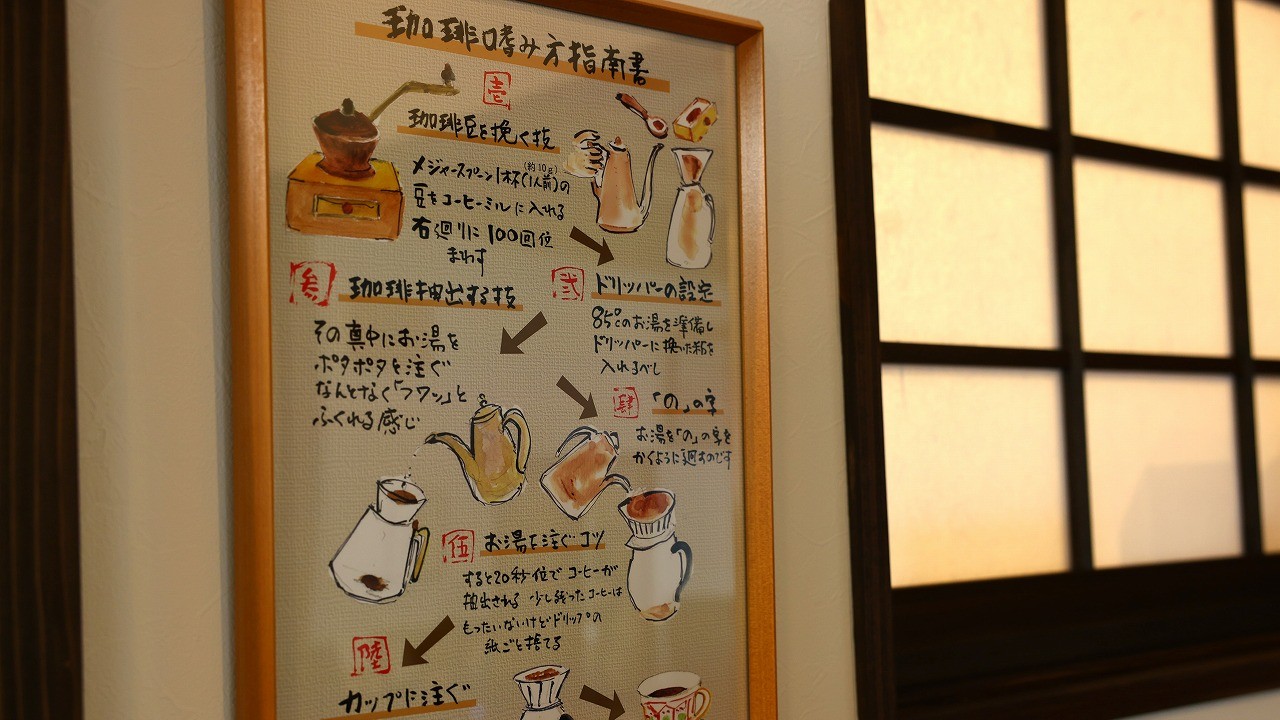 珈琲嗜み方指南書
壱
珈琲豆を挽く技
(約10g)
メジャースプーン1杯(1人前)の
豆をコーヒーミルに入れる
右廻りに100回位
まわす
弐
ドリッパーの設定
85℃のお湯を準備し
ドリッパーに挽いた粉を
入れるべし
参
珈琲抽出する技
その真中にお湯を
ポタポタと注ぐ
なんとなく「フワッ」と
ふくれる感じ
肆
「の」の字
お湯を「の」の字を
かくように廻すのです
伍
お湯を注ぐコツ
すると20秒位でコーヒーが
抽出される 少し残ったコーヒーは
もったいないけどドリップの
紙ごと捨てる
陸
カップに注ぐ